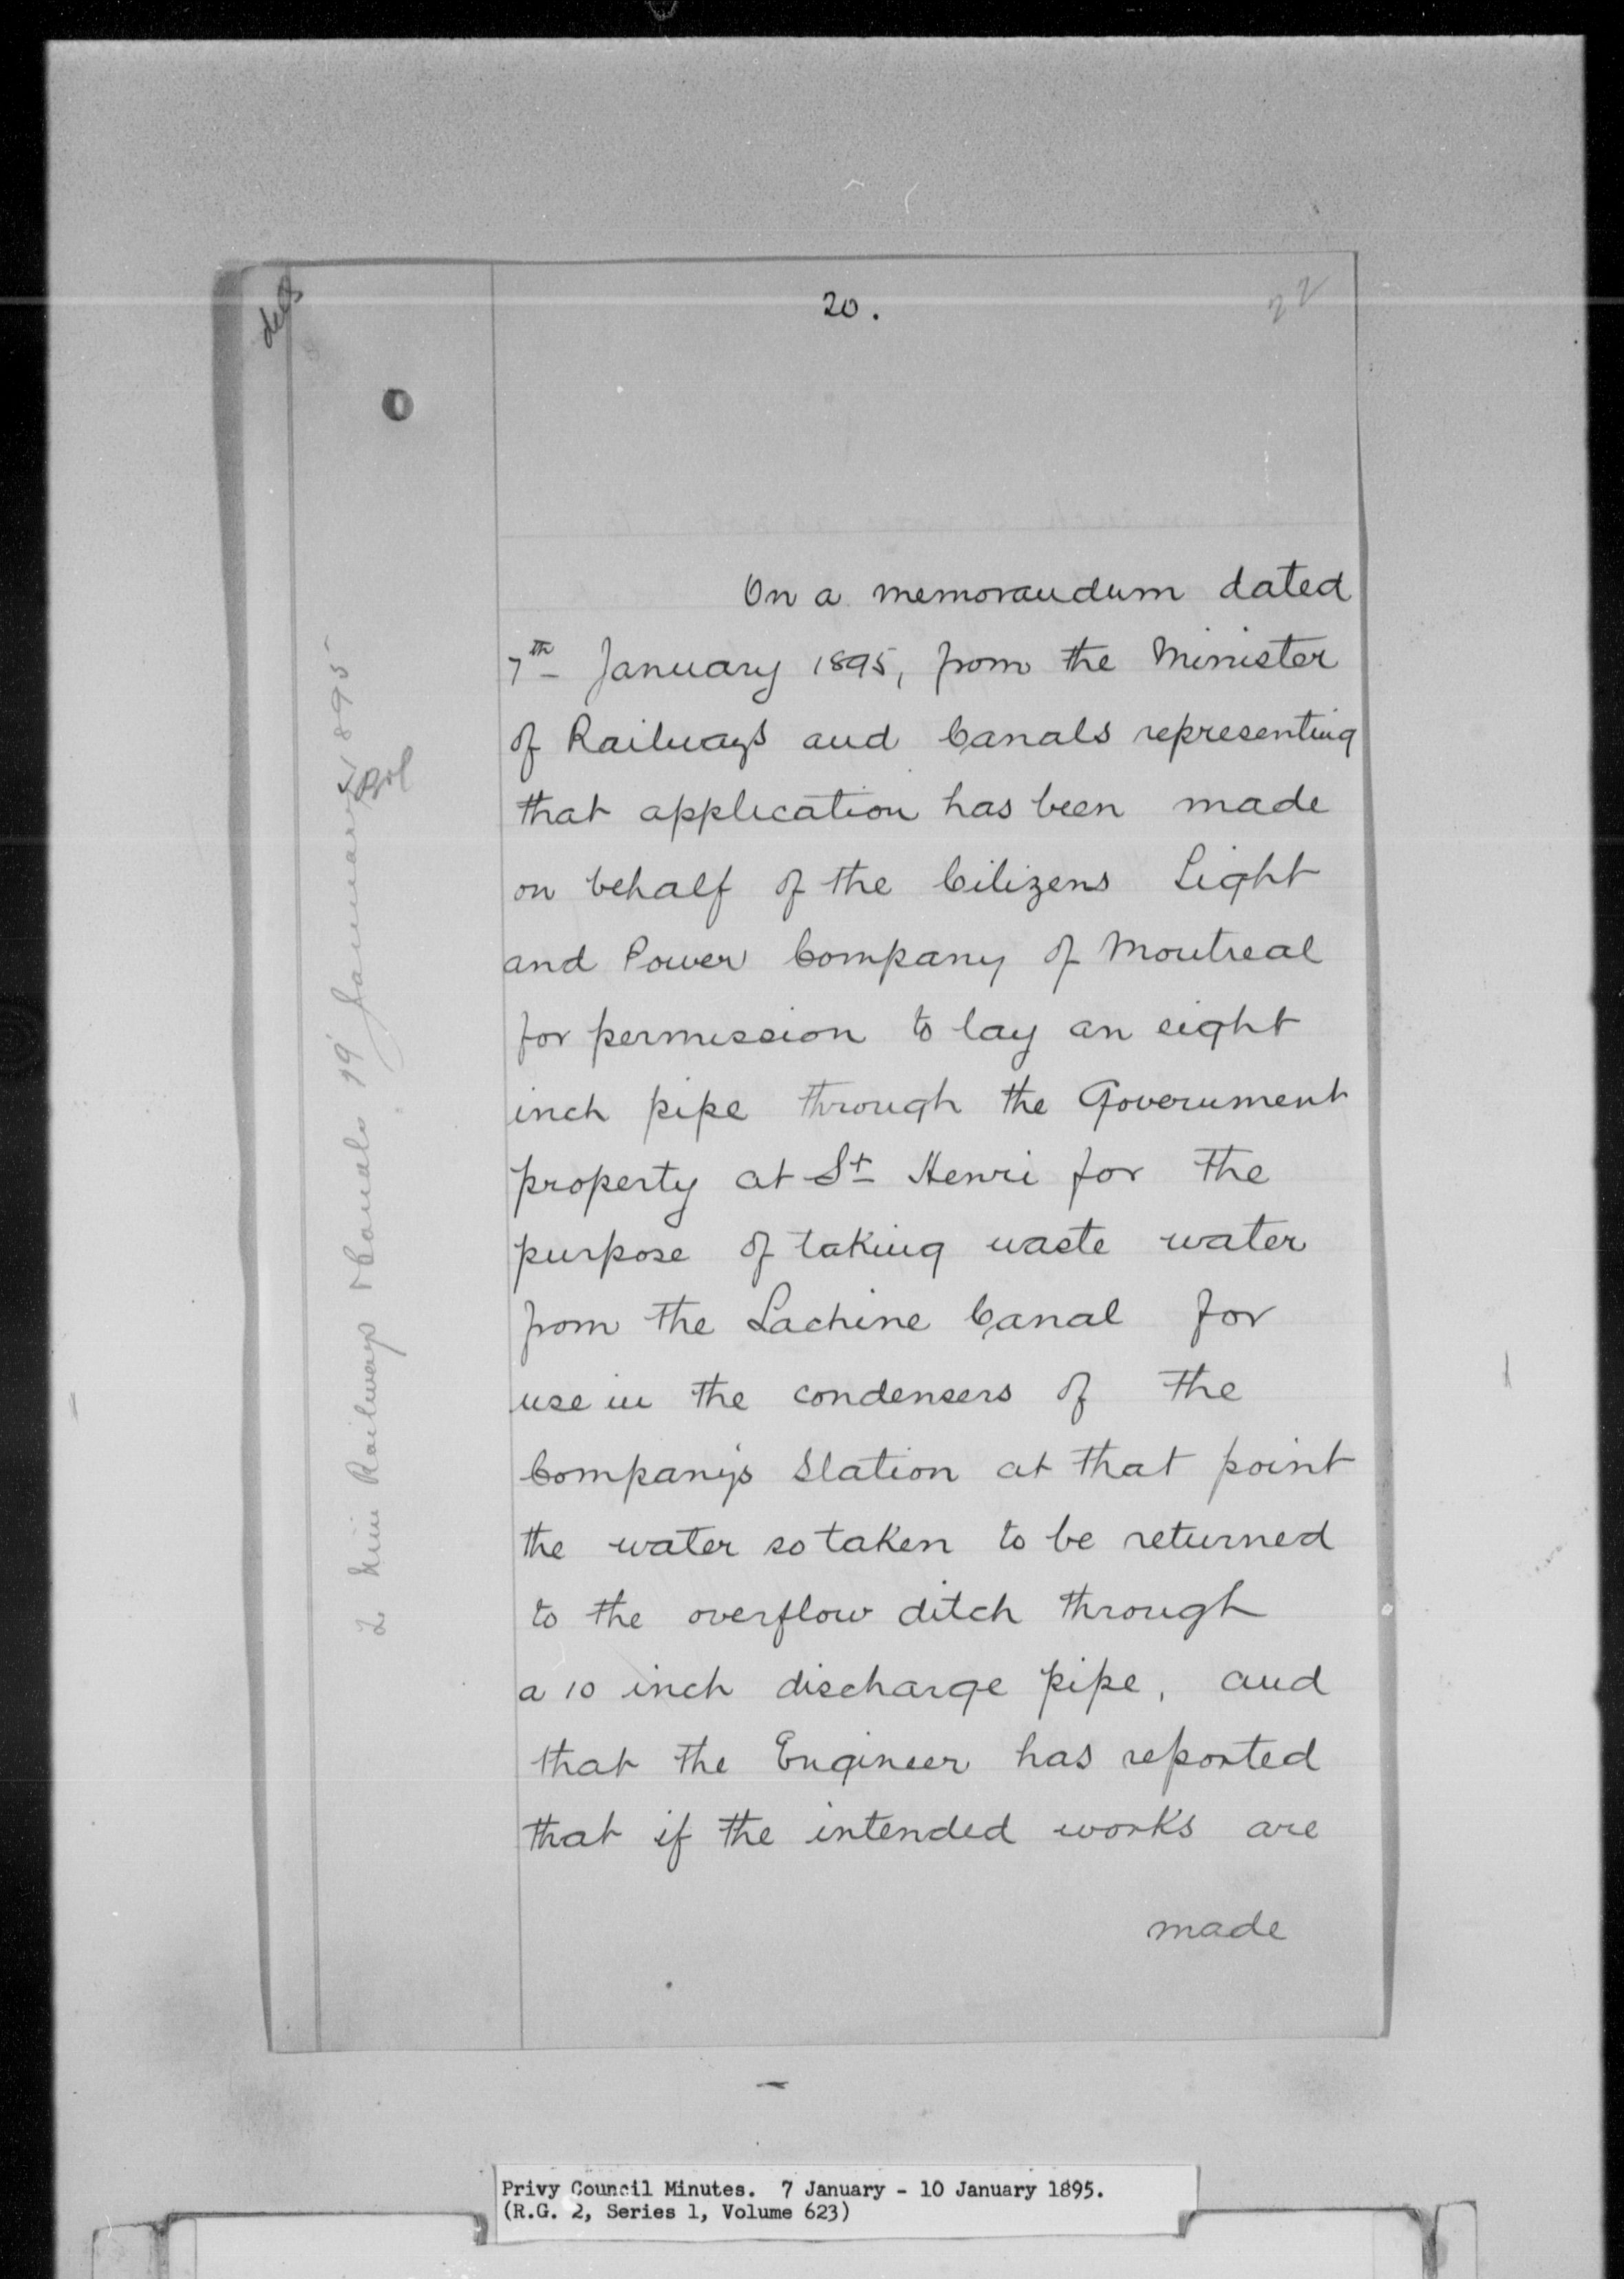 20.
22
On a memorandum dated
7th January 1895, from the Minister
of Railways and Canals representing
that application has been made
on behalf of the Citizens Light
and Power Company of Montreal
for permission to lay an eight
inch pipe through the Government
property at St Henri for the
purpose of taking waste water
from the Lachine Canal for
use in the condensers of the
Company's Station at that point
the water so taken to be returned
to the overflow ditch through
a 10 inch discharge pipe, and
that the Engineer has reported
that if the intended works are
made
Min Railways & Canals 19 January 1895
Privy Council Minutes. 7 January - 10 January 1895.
(R.G. 2, Series 1, Volume 623)